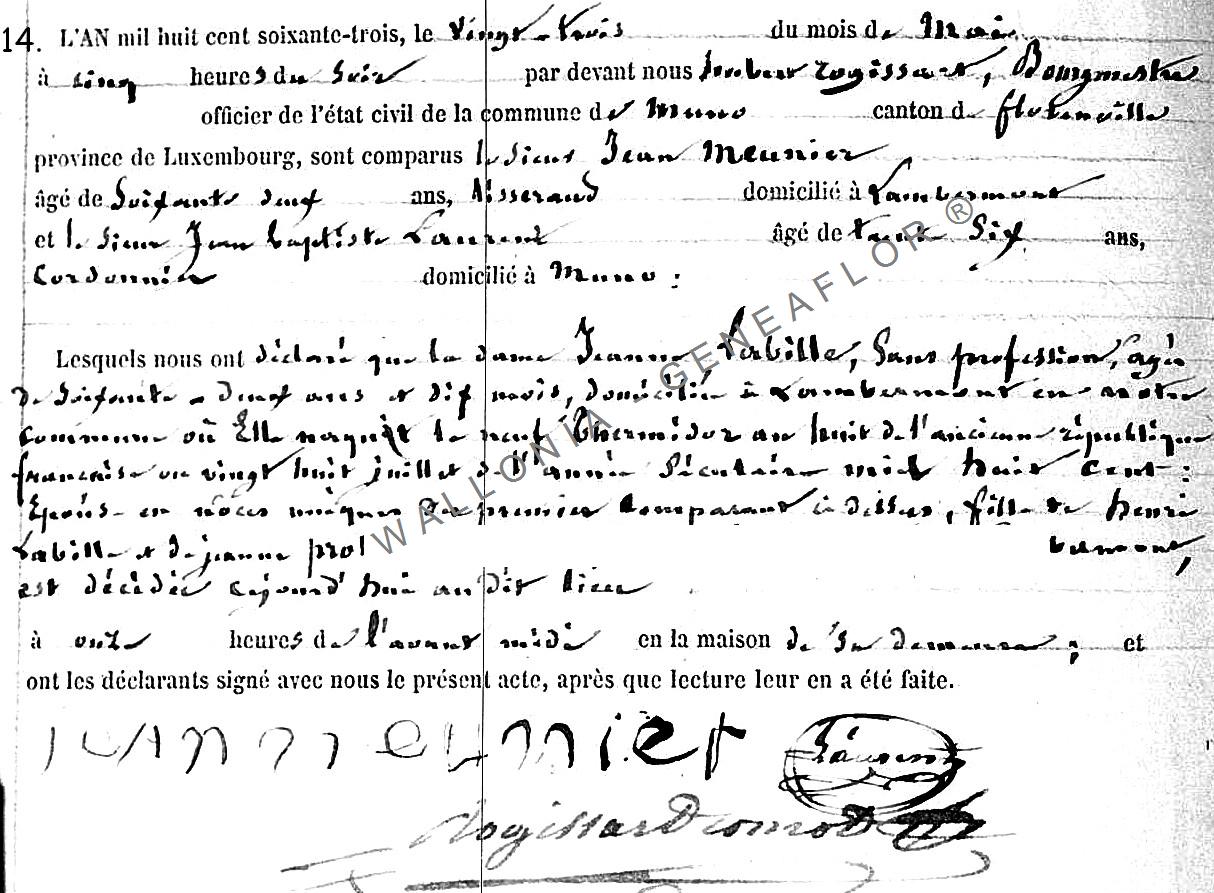 14. L'AN mil huit cent soixante-trois, le vingt-trois du mois de Mai
à cinq heures du Soir par devant nous Rogissart, Bourgmestre
officier de l'état civil de la commune de Muno canton de florenville
province de Luxembourg, sont comparus le sieur Jean Meunier
âgé de Soixante deux ans, tisserand domicilié à Lambermont
et le sieur Jean Baptiste Laurent âgé de trente Six ans,
Cordonnier domicilié à Muno :
Lesquels nous ont déclaré que la dame Jeanne Labille, Sans profession, agée
de Soixante-deux ans et dix mois, domiciliée à Lambermont en notre
Commune où Elle naquit le neuf Thermidor an huit de l'ancienne république
française ou vingt huit juillet de l'année Séculaire mil huit cent :
Epouse en nôces uniques du premier Comparant ci dessus, fille de henri
Labille et de jeanne
est décédée cejourd'hui au dit lieu
à onze heures de l'avant midi en la maison de Sa demeure ; et
ont les déclarants signé avec nous le présent acte, après que lecture leur en a été faite.
Laurent
Rogissart
WALLONIA - GENEAFLOR ®